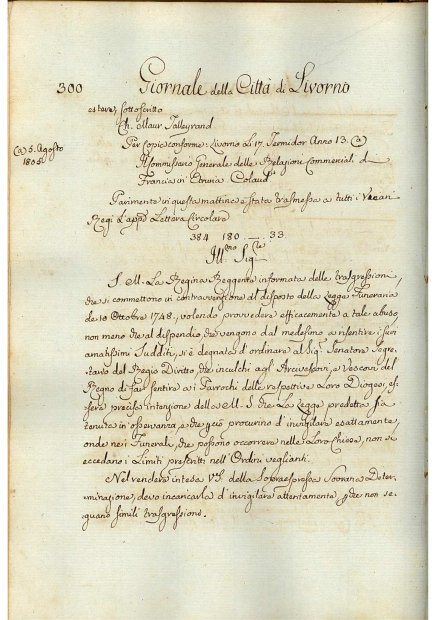 300 Giornale della Città di Livorno
estere, sottoscritto
Ch. Maur Talleyrand
(a) 5. Agosto
1805.
Per Copia conforme: Livorno li 17. Termidor Anno 13. (a)
Il Commissario Generale delle Relazioni Commerciali di
Francia in Etruria Colaud
Parimente in questa mattina è stata trasmessa a tutti i Vicari
Regi l'app.ª Lettera Circolare
384 180. — 33
Ill.mo Sig.
S. M. La Regina Reggente informata delle trasgressioni,
che si commettono in contravvenzione al disposto della Legge Funeraria
de 10 Ottobre 1748., volendo provvedere efficacemente a tale abuso
non meno che al dispendio, che vengono dal medesimo a risentire i suoi
amatissimi Sudditi, si è degnata d'ordinare al Sig. Senatore Segre-
tario del Regio Diritto che inculchi agl' Arcivescovi, e Vescovi del
Regno di far sentire ai Parrochi delle respettive Loro Diogesi, es-
sere precisa intenzione della M. S. che La Legge predetta sia
tenuta in osservanza, e che perciò procurino d'invigilare esattamente,
onde nei Funerali, che possono occorrere nelle Loro Chiese, non si
eccedano i Limiti prescritti nell' Ordini veglianti.
Nel rendere intesa V. S. della Sopraespressa Sovrana Deter-
minazione, devo incaricarla d'invigilare attentamente, perche non se-
guano simili trasgressioni.